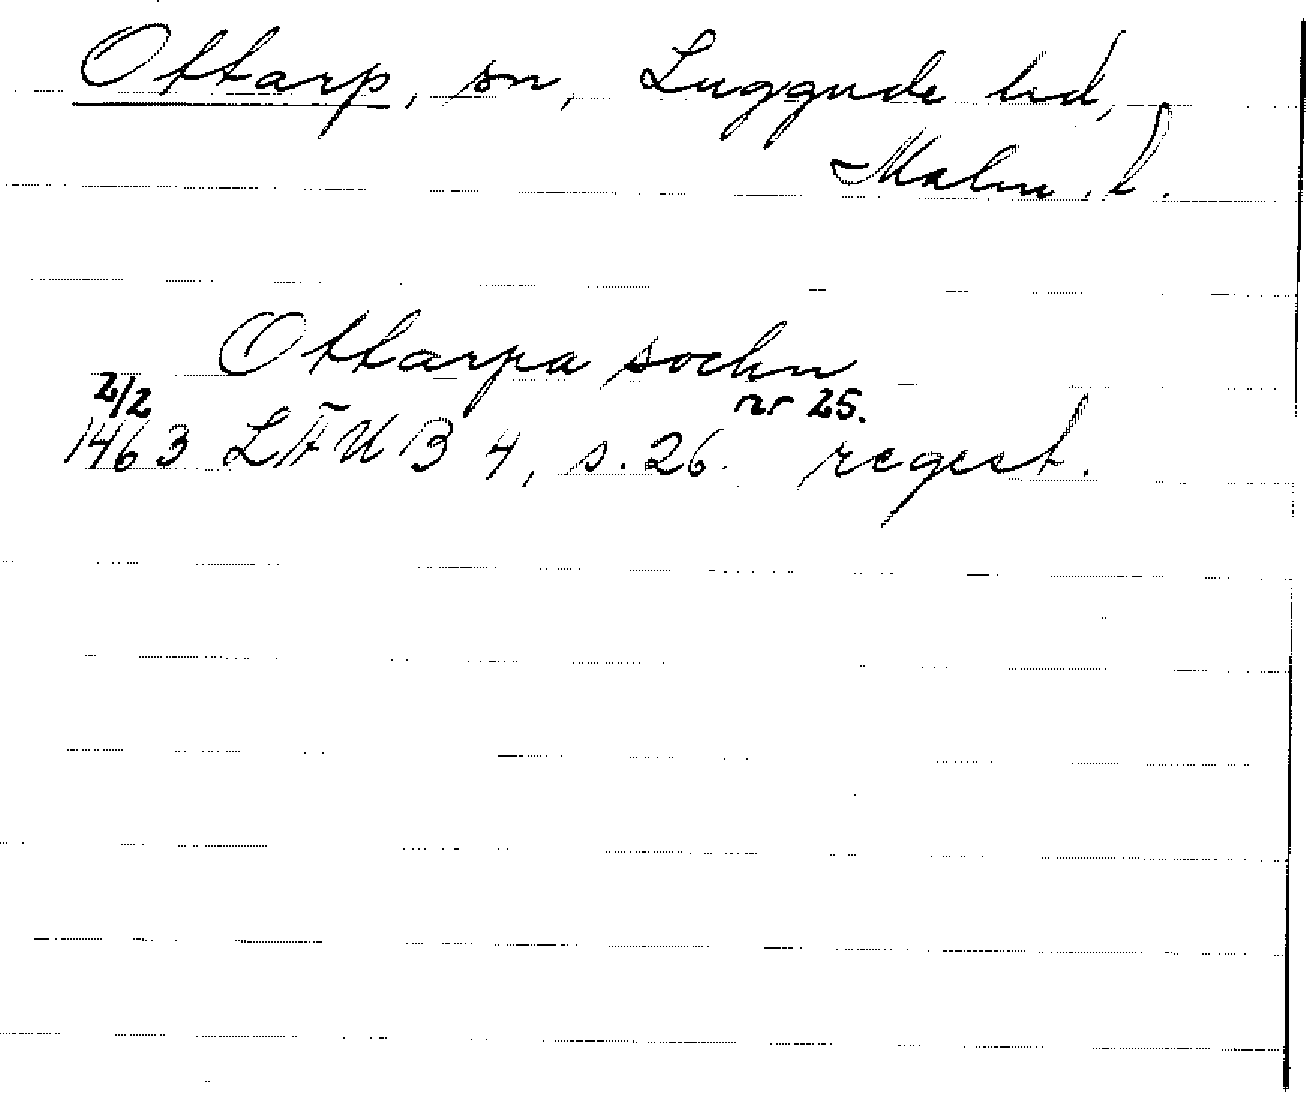 Ottarp, sn, Luggude hd,
Malm. l.
Ottarpa sochn
2/2 nr 25.
1463 LÄUB 4, s. 26. regest.